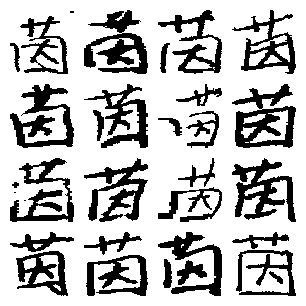 茵茵茵茵
茵茵茵茵
茵茵茵茵
茵茵茵茵